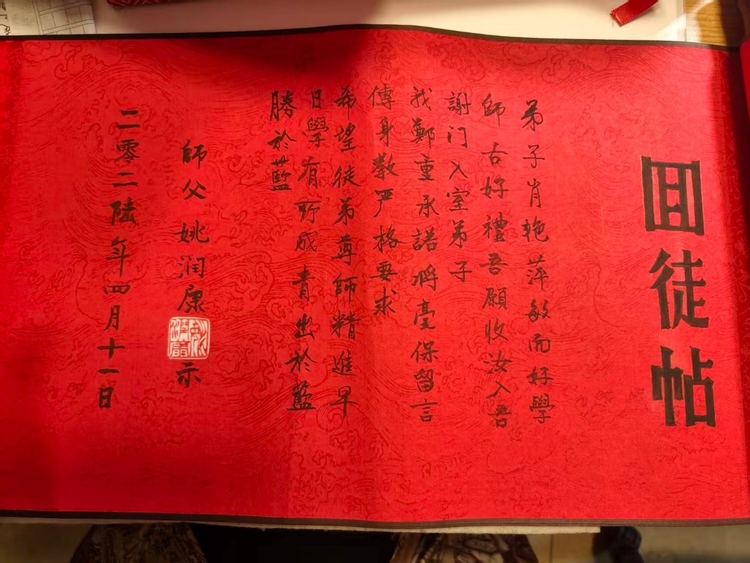 回徒帖
弟子肖艳萍敏而好學
師古好禮吾願收汝入吾
謝门入室弟子
我鄭重承諾將毫保留言
傳身教严格要求
希望徒弟尊師精進早
日學有所成青出於藍
勝於藍
師父姚润康
示
二零二陆年四月十一日